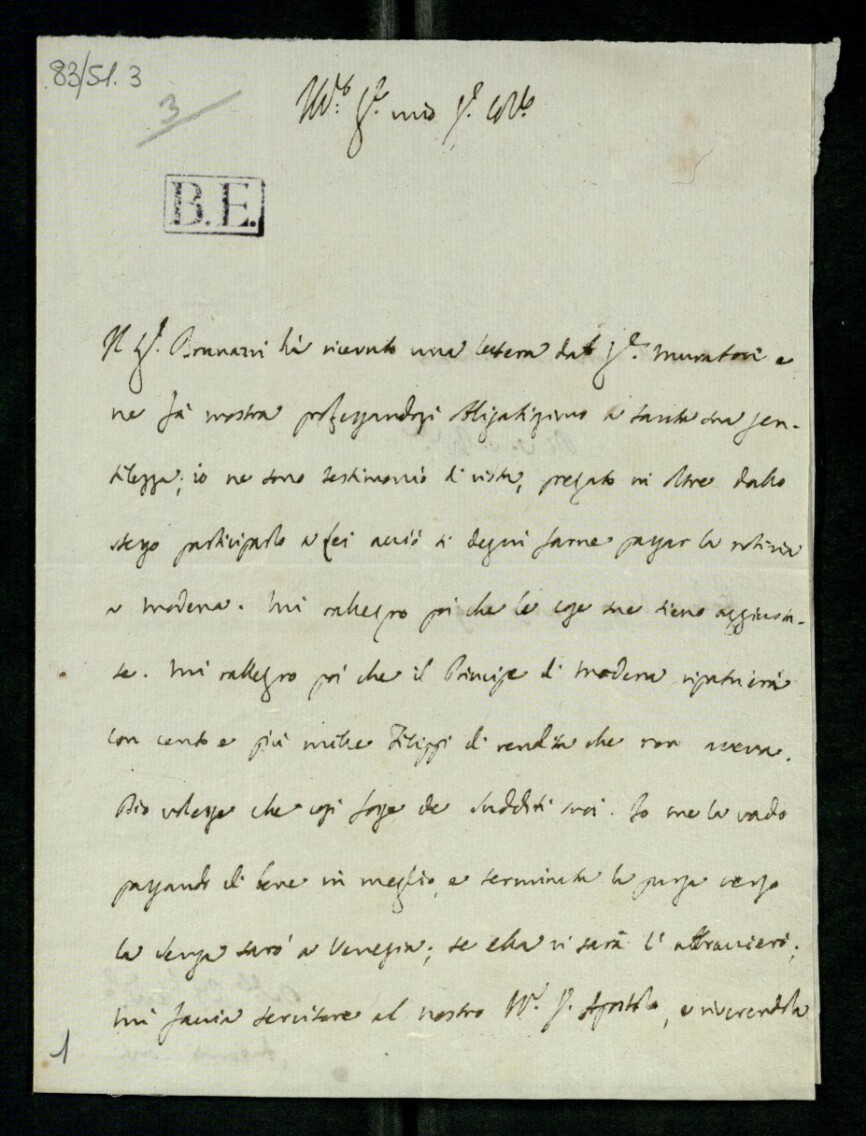 83/51. 3
3
Ill.mo Sig.r mio Sig.r Col.mo
B.E.
Il Sig.r Brunazzi hà ricevuto una lettera dal Sig.r Muratori e
ne fà mostra professandosi obligatissimo a tanta sua gen-
tilezza; io ne sono testimonio di vista, pregato in oltre dallo
stesso participarlo a Lei acciò si degni farne passar la notizia
a Modena. Mi rallegro poi che le cose sue sieno aggiusta-
te. Mi rallegro poi che il Principe di Modena ripatrierà
con cento e più mille Filippi di rendita che non aveva.
Dio volesse che così fosse de sudditi suoi. Io me la vado
passando di bene in meglio, e terminata la purga verso
la Sensa sarò a Venezia; se ella vi sarà l'
Mi faccia servitore al nostro Ill.mo Sig.r Apostolo, e riverendola
1